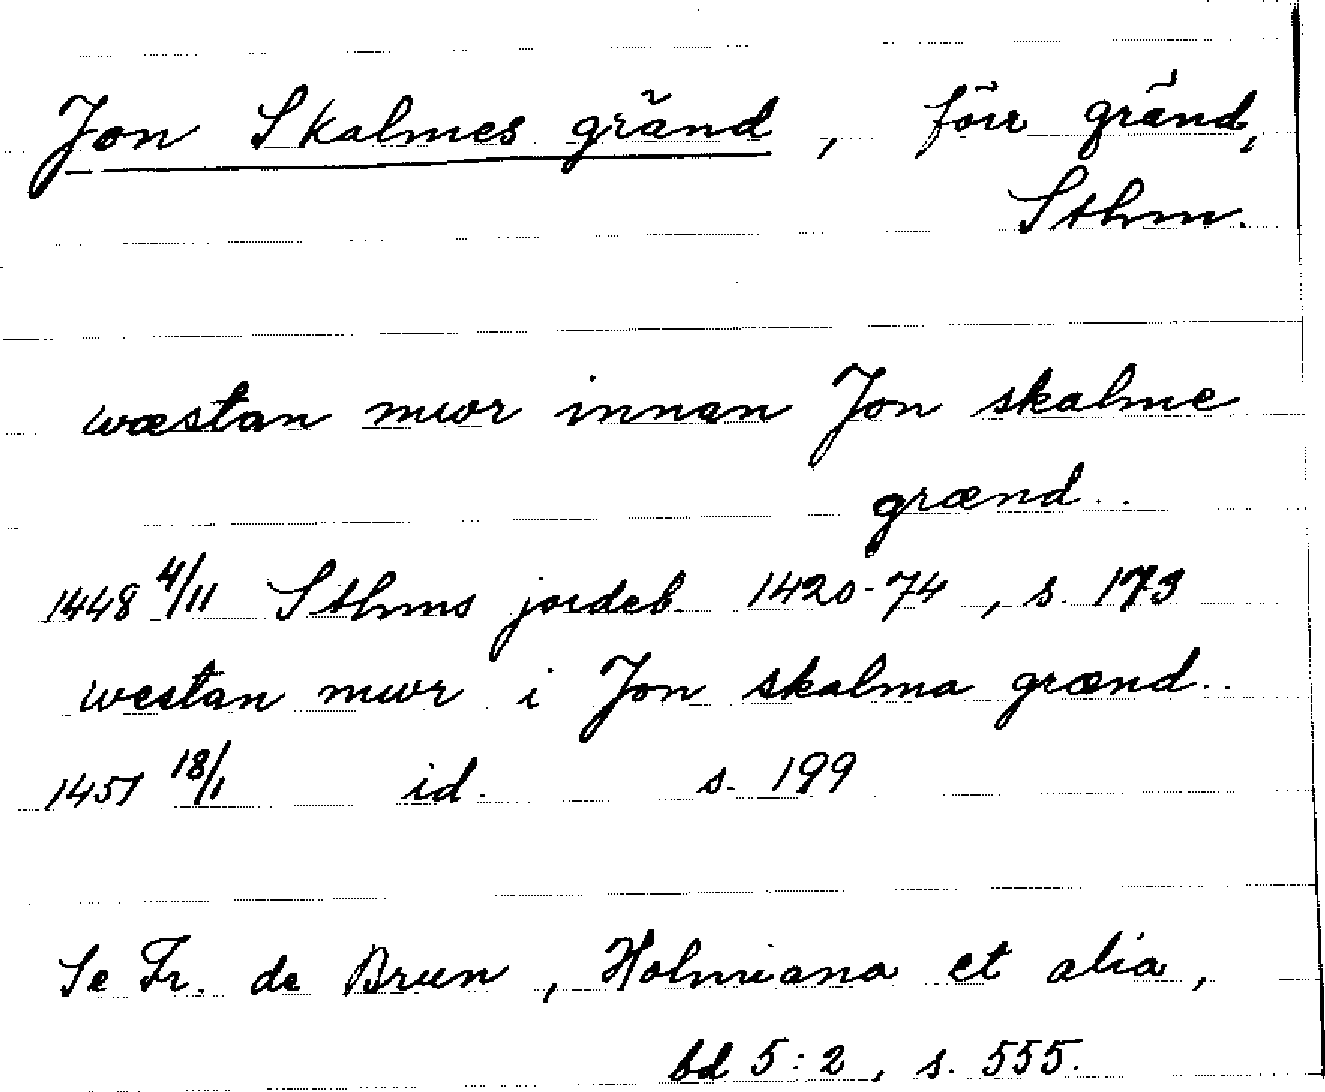 Jon Skalmes gränd, förr gränd,
Sthm.
wæstan mwr innan Jon skalme
grænd..
1448 4/11 Sthms jordeb 1420-74, s. 173
westan mwr i Jon skalma grænd..
1451 18/1 id. s. 199
Se Fr. de Brun, Holmiana et alia,
bd 5:2, s. 555.